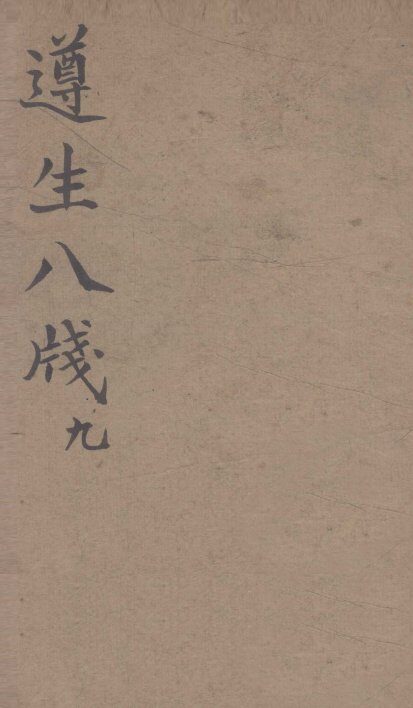 遵生八牋九